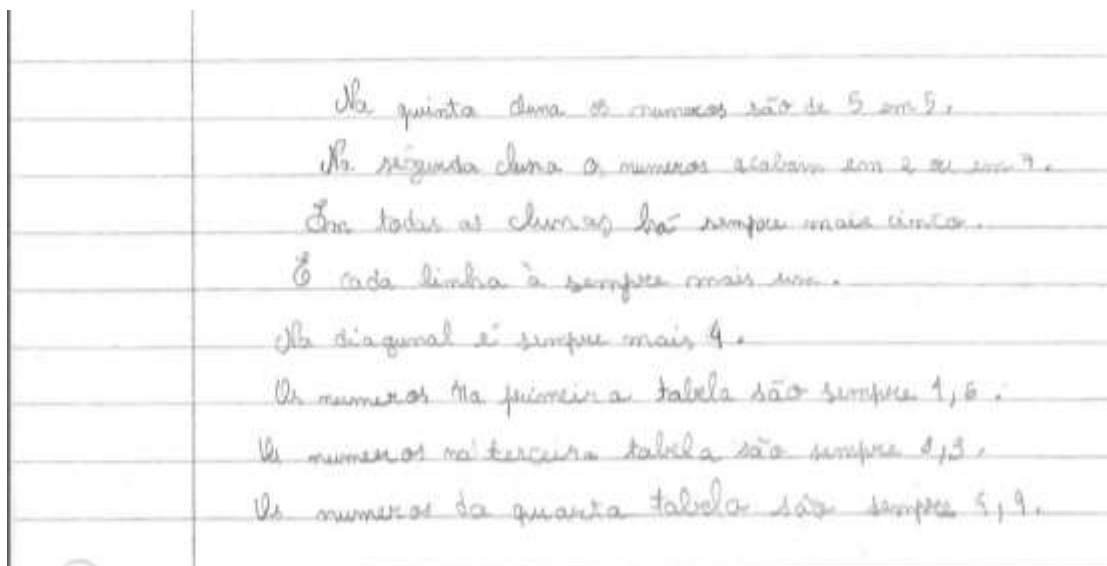 Na quinta cluna os numeros são de 5 em 5.
Na ségunda cluna os numeros acabam em 2 ou em 7.
Em todas as clunas há sempre mais cinco.
É cada linha à sempre mais um.
Na diagunal é sempre mais 4.
Os numeros na primeira tabela são sempre 1, 6.
Os numeros na terceira tabela são sempre
Os numeros da quarta tabela são sempre 4, 9.